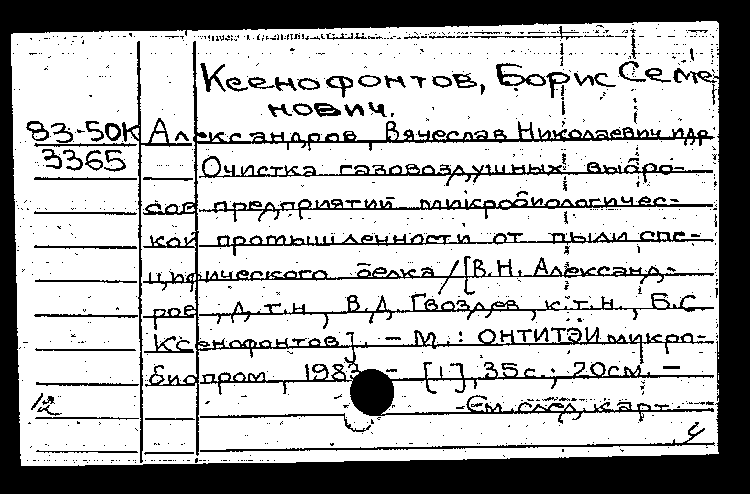 Ксенофонтов, Борис Семе-
нович.
83-50К Александров, Вячеслав Николаевич и др
3365 Очистка газовоздушных выбро-
сов предприятий микробиологичес-
кой промышленности от пыли спе-
цифического белка / [В.Н. Александ-
ров, д.т.н., В.Д. Гвоздев, к.т.н., Б.С.
Ксенофонтов]. - М.: ОНТИТЭИмикро-
биопром, 1983 - [1], 35 с.; 20см. -
12 См. след. карт.